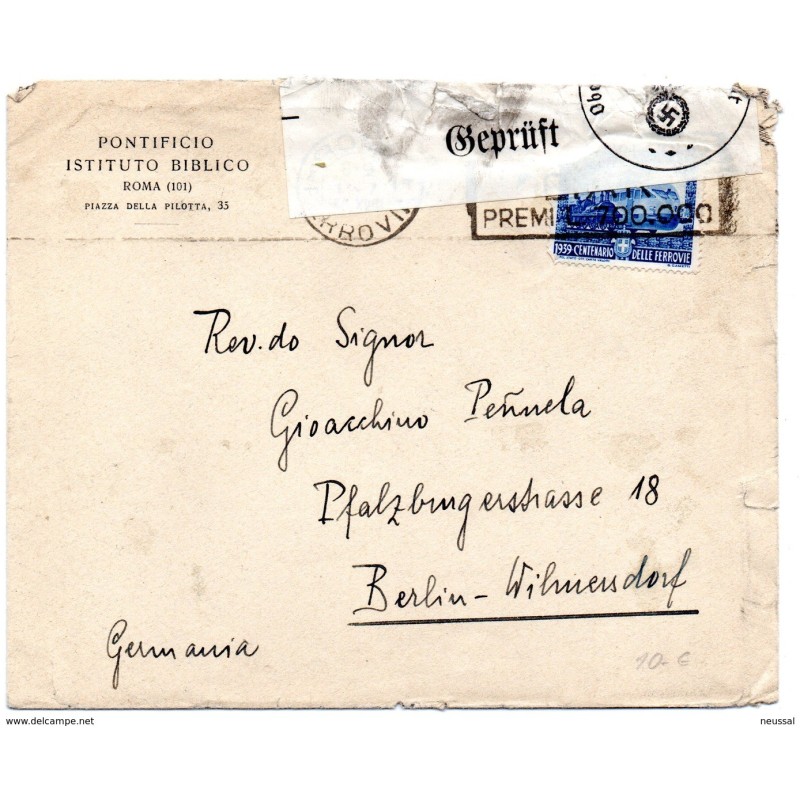 PONTIFICIO
ISTITUTO BIBLICO
ROMA (101)
PIAZZA DELLA PILOTTA, 35
Geprüft
Obe
PREMI L. 700.000
1939 CENTENARIO DELLE FERROVIE
Rev.do Signor
Gioacchino Peñuela
Pfalzburgerstrasse 18
Berlin-Wilmersdorf
Germania
10-€
www.delcampe.net
neussal